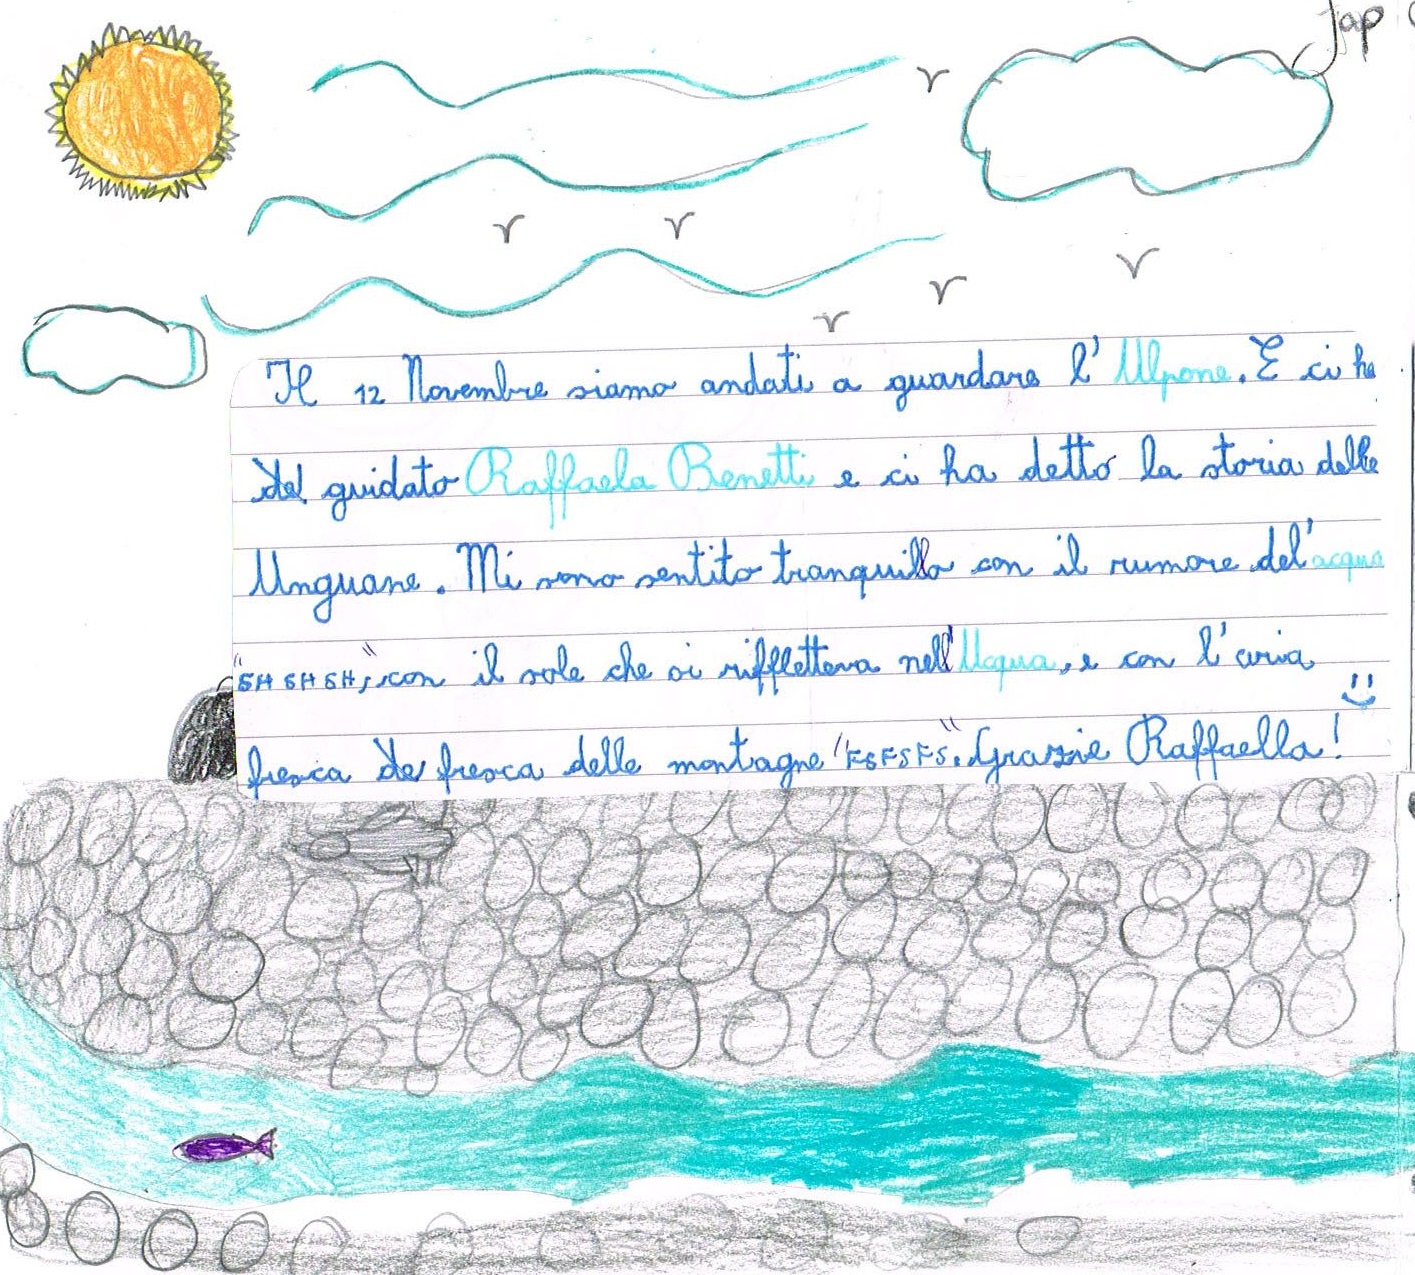 Jap
Il 12 Novembre siamo andati a guardare l'Alpone. E ci ha
guidato Raffaela Benetti e ci ha detto la storia delle
Anguane. Mi sono sentito tranquillo con il rumore del'acqua
"SH SH SH", con il sole che si riffletteva nell'Acqua, e con l'aria
fresca fresca delle montagne "FSFSFS". Grazie Raffaella!